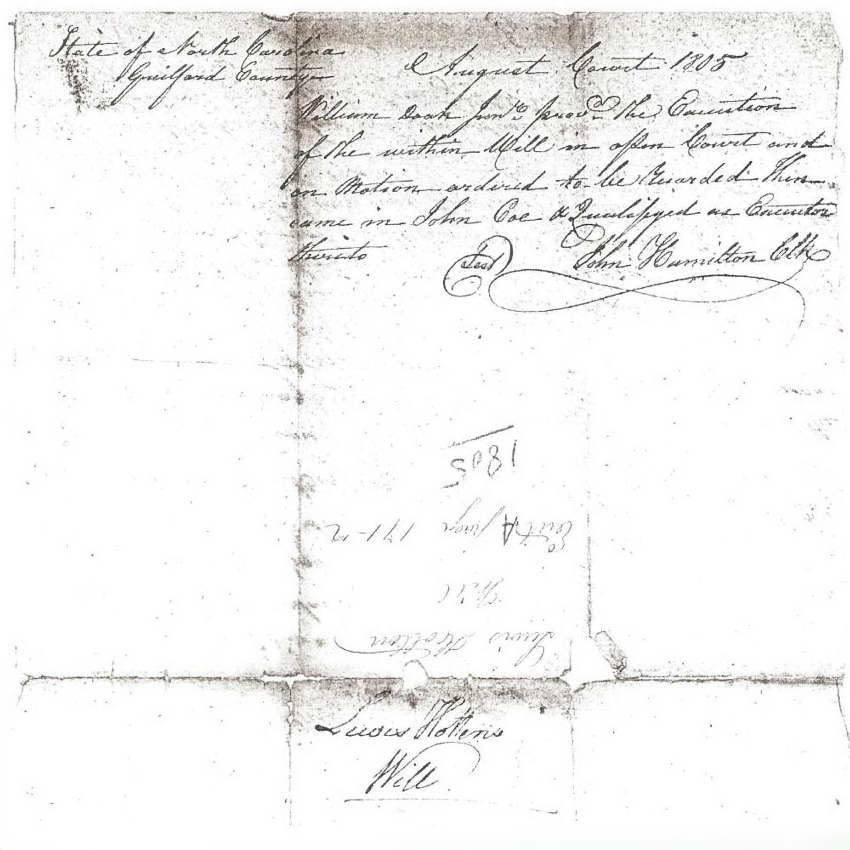 State of North Carolina
Guilford County
August Court 1805
William Doak Junr. provd. the Execution
of the within Will in open Court and
on Motion ordired to be Recorded Then
came in John Coe & Qualifyed as Executor
thereto
Test
John Hamilton Clk
1805
A page 171-2
Will
Lewis
Lewis
Will